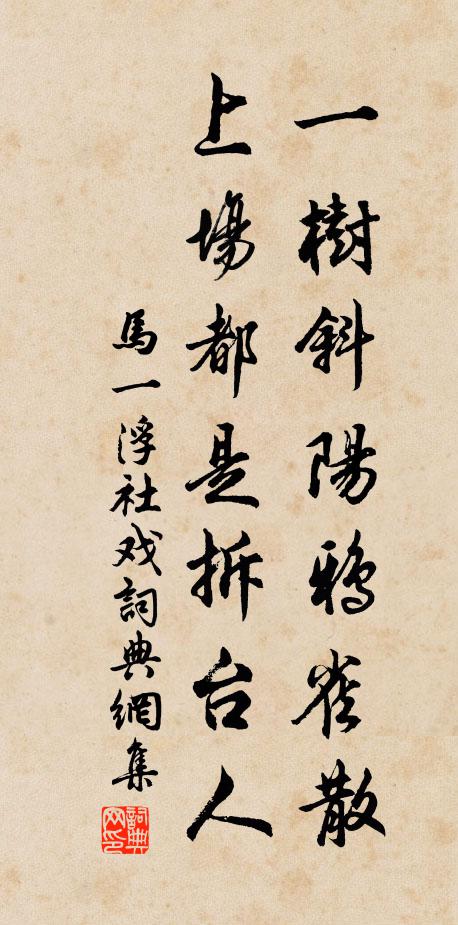 一樹斜陽鴉雀散
上場都是拆台人
馬一浮社戏詞典網集
詞典网印